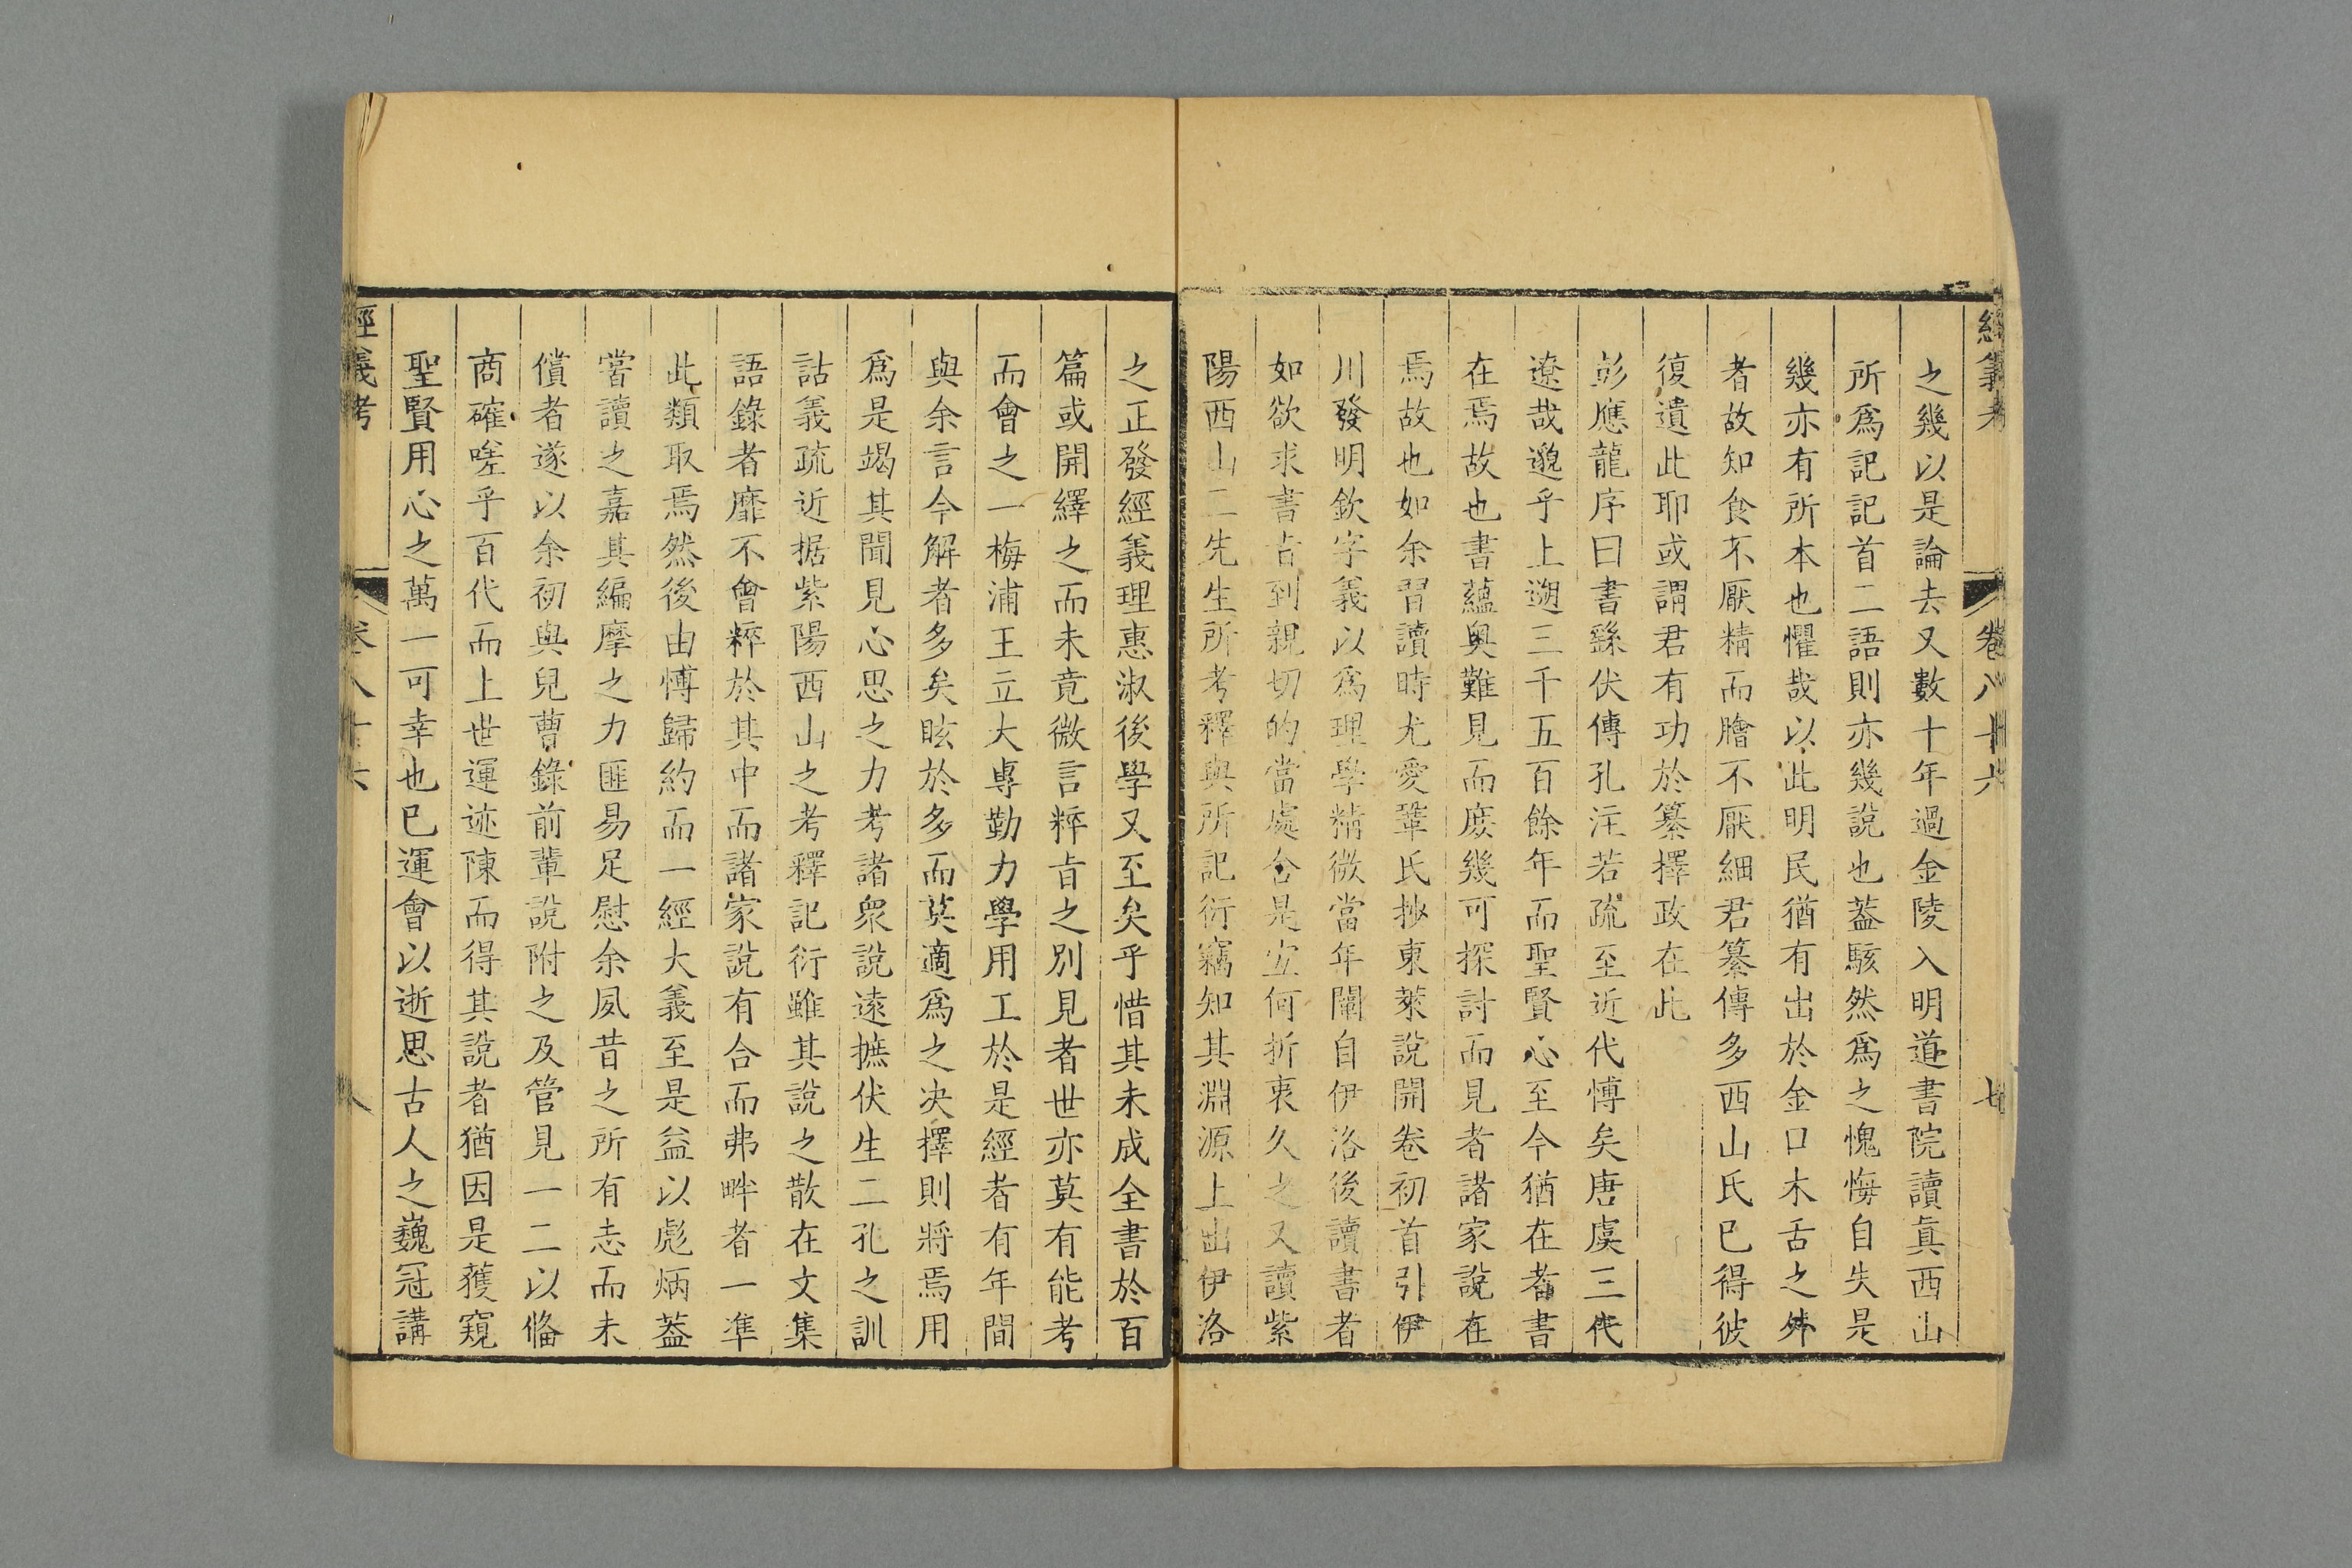 經義考 卷八十六 七
之幾以是論去又數十年過金陵入明道書院讀眞西山
所爲記記首二語則亦幾說也葢駭然爲之愧悔自失是
幾亦有所本也懼哉以此明民猶有出於金口木舌之外
者故知食不厭精而膾不厭細君纂傳多西山氏已得彼
復遺此耶或謂君有功於纂擇政在此
彭應龍序曰書繇伏傳孔注若疏至近代博矣唐虞三代
遼哉邈乎上遡三千五百餘年而聖賢心至今猶在者書
在焉故也書蘊奥難見而庻幾可探討而見者諸家說在
焉故也如余習讀時尤愛鞏氏抄東萊說開卷初首引伊
川發明欽字義以爲理學精微當年闡自伊洛後讀書者
如欲求書㫖到親切的當處舍是宐何折衷久之又讀紫
陽西山二先生所考釋與所記衍竊知其淵源上出伊洛
之正發經義理惠淑後學又至矣乎惜其未成全書於百
篇或開繹之而未竟微言粹㫖之別見者世亦莫有能考
而會之一梅浦王立大專勤力學用工於是經者有年間
與余言今解者多矣眩於多而莫適爲之决擇則將焉用
爲是竭其聞見心思之力考諸衆說遠摭伏生二孔之訓
詁義疏近据紫陽西山之考釋記衍雖其說之散在文集
語錄者靡不會粹於其中而諸家說有合而弗畔者一準
此類取焉然後由博歸約而一經大義至是益以彪炳葢
嘗讀之嘉其編摩之力匪易足慰余夙昔之所有志而未
償者遂以余初與兒曹錄前輩說附之及管見一二以僃
商確嗟乎百代而上世運迹陳而得其說者猶因是獲窺
聖賢用心之萬一可幸也已運會以逝思古人之巍冠講
經義考 卷八十六 八